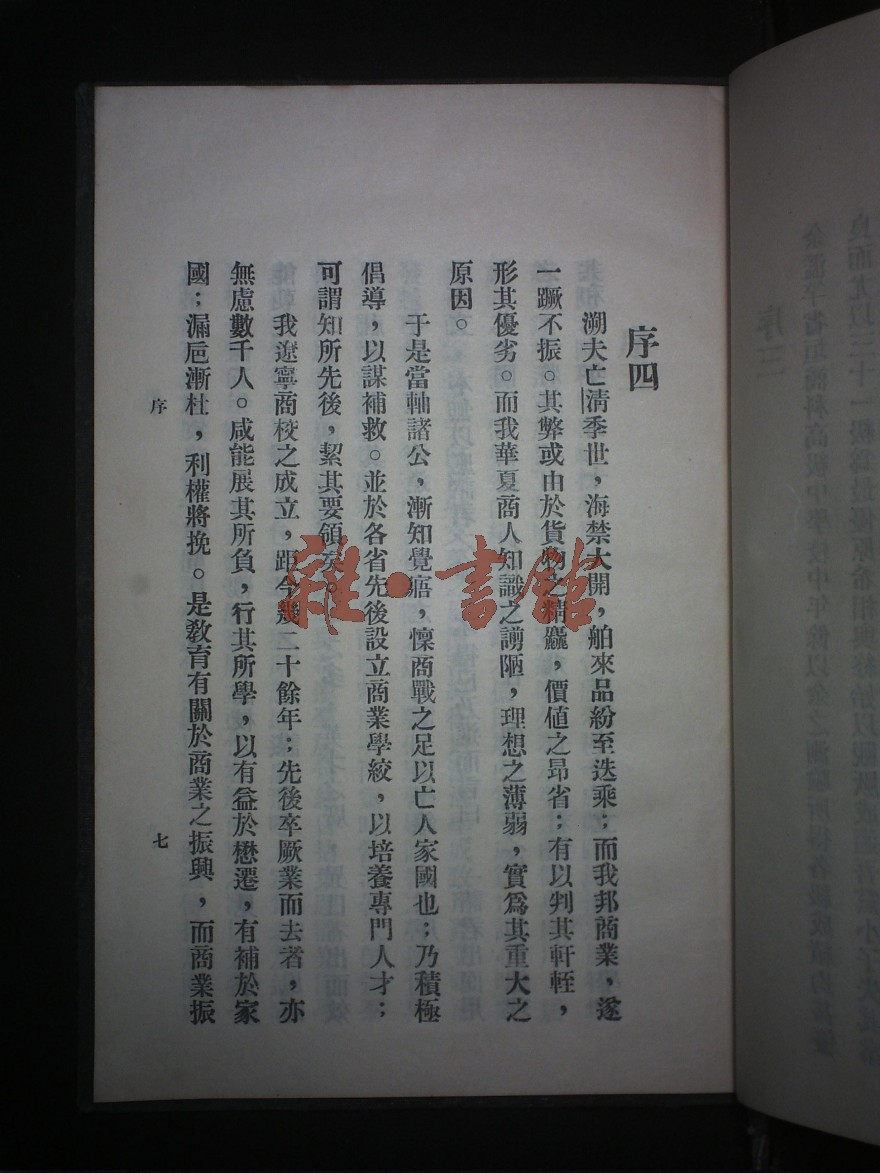 序四
溯夫亡清季世，海禁大開，舶來品紛至迭乘；而我邦商業，遂
一蹶不振。其弊或由於貨物之精麤，價値之昂省；有以判其軒輊，
形其優劣。而我華夏商人知識之谫陋，理想之薄弱，實爲其重大之
原因。
于是當軸諸公，漸知覺寤，懍商戰之足以亡人家國也；乃積極
倡導，以謀補救。並於各省先後設立商業學絞，以培養專門人才；
可謂知所先後，絜其要領矣。
我遼寧商校之成立，距今幾二十餘年；先後卒厥業而去者，亦
無慮數千人。咸能展其所負，行其所學，以有益於懋遷，有補於家
國；漏巵漸杜，利權將挽。是敎育有關於商業之振興，而商業振
序
七
雜·書館
序三